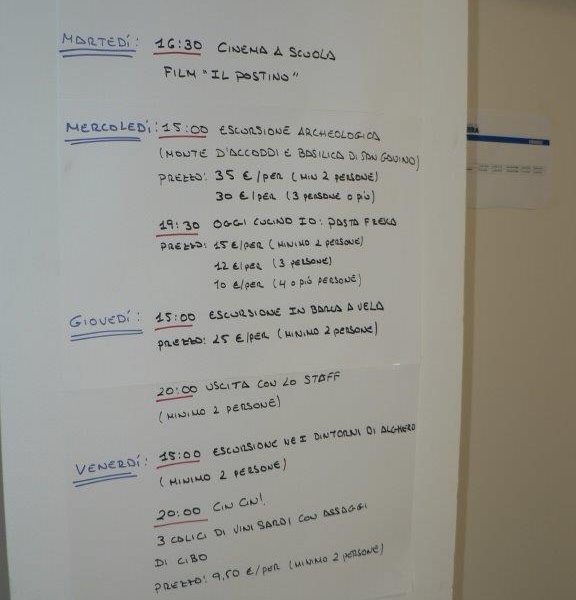 MARTEDÍ: 16:30 CINEMA A SCUOLA
FILM "IL POSTINO"
MERCOLEDÍ: 15:00 ESCURSIONE ARCHEOLOGICA
(MONTE D'ACCODDI E BASILICA DI SAN GAVINO)
PREZZO: 35 €/PER (MIN 2 PERSONE)
30 €/PER (3 PERSONE O PIÙ)
19:30 OGGI CUCINO IO: PASTA FRESCA
PREZZO: 15 €/PER (MINIMO 2 PERSONE)
12 €/PER (3 PERSONE)
10 €/PER (4 O PIÙ PERSONE)
GIOVEDÍ: 15:00 ESCURSIONE IN BARCA A VELA
PREZZO: 25 €/PER (MINIMO 2 PERSONE)
20:00 USCITA CON LO STAFF
(MINIMO 2 PERSONE)
VENERDÍ: 15:00 ESCURSIONE NEI DINTORNI DI ALGHERO
(MINIMO 2 PERSONE)
20:00 CIN CIN!
3 CALICI DI VINI SARDI CON ASSAGGI
DI CIBO
PREZZO: 9,50 €/PER (MINIMO 2 PERSONE)